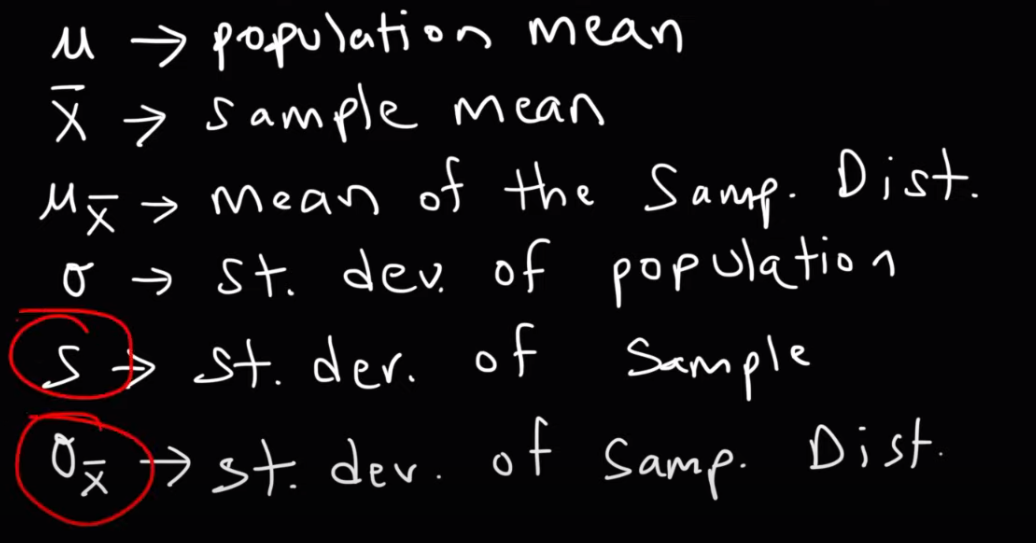 μ → population mean
x̄ → sample mean
μx̄ → mean of the Samp. Dist.
σ → st. dev. of population
s → st. dev. of Sample
σx̄ → st. dev. of Samp. Dist.